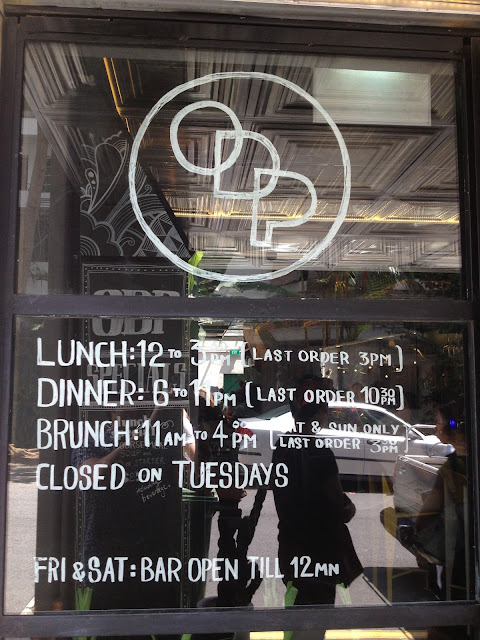 ODP
ODP
SPECIALS
LUNCH: 12 TO 3 30 PM [LAST ORDER 3PM]
DINNER: 6 TO 11PM [LAST ORDER 10 30 PM]
BRUNCH: 11 AM TO 4 00 PM [SAT & SUN ONLY
LAST ORDER 3 30 PM]
CLOSED ON TUESDAYS
FRI & SAT: BAR OPEN TILL 12MN